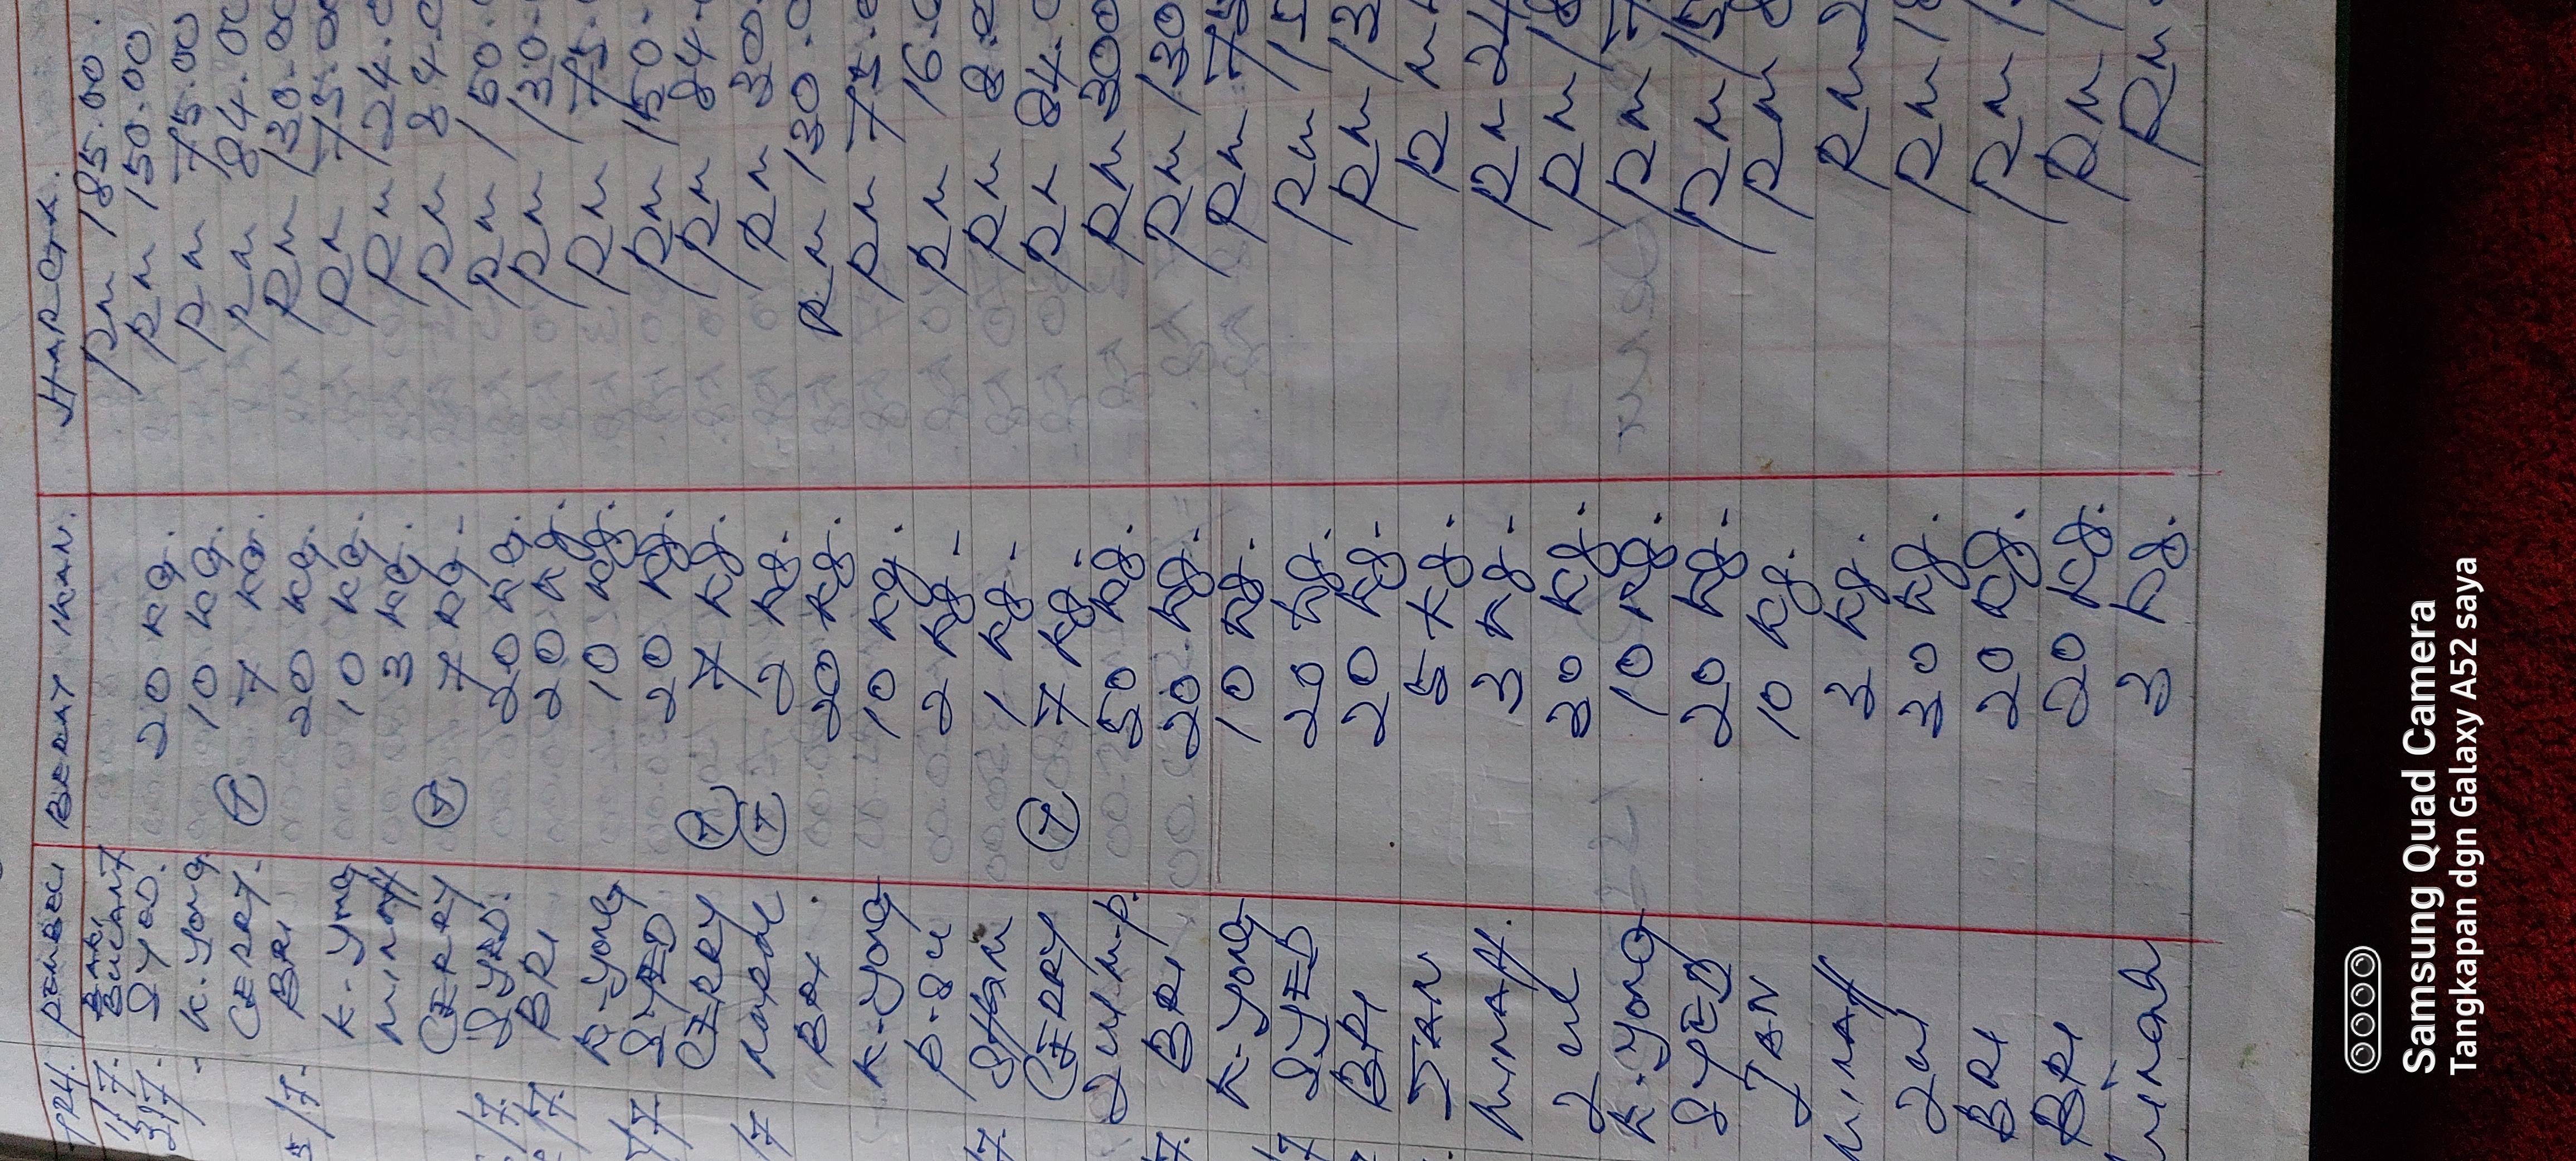 TRH. PEMBELI BERAT IKAN. HARGA.
1/7. BAKI BUCANT RM 185.00.
3/7. SYED. 20 KG. RM 150.00
K-Yong 10 KG. RM 75.00
CERRY. 7 KG. RM 84.00
/7. BRI 20 KG. RM 130.00
K-Yong 10 KG. RM 75.00
MINAH 3 KG. RM 24.0
CERRY 7 KG. RM 84.0
/7. SYED. 20 KG. RM 150.
/7. BRI 20 KG. RM 130.
K-Yong 10 KG. RM 75.
/7. SYED 20 KG. RM 150.
CERRY 7 KG. RM 84.
/7 2 KG. RM 30.
BRI. 20 KG. RM 130.0
K-Yong 10 KG. RM 75.
P-SU 2 KG. RM 16.0
/7. 1 KG. RM 8.0
CERRY 7 KG. RM 84.0
ZUL M.P. 50 KG. RM 300
/7. BRI 20 KG. RM 130
K-Yong 10 KG. RM 75
/7 SYED 20 KG. RM 15
BRI 20 KG. RM 13
JAN 5 KG. RM
MINAH. 3 KG. RM 24
ZUL 30 KG. RM 18
K-Yong 10 KG. RM 7
SYED 20 KG. RM 15
JAN 10 KG. RM 8
MINAH 3 KG. RM 2
ZUL 30 KG. RM 18
BRI 20 KG. RM 1
BRI 20 KG. RM
MINAH 3 KG. RM
Samsung Quad Camera
Tangkapan dgn Galaxy A52 saya